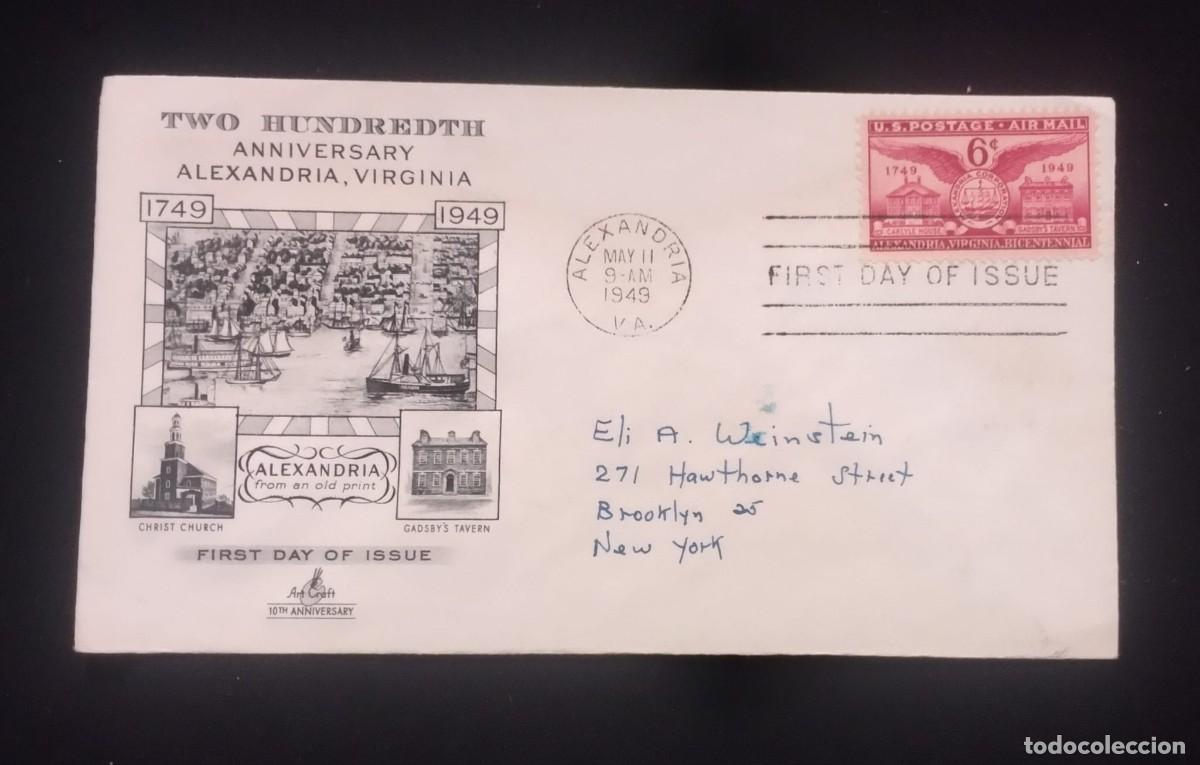 TWO HUNDREDTH
ANNIVERSARY
ALEXANDRIA, VIRGINIA
1749
1949
ALEXANDRIA
from an old print
CHRIST CHURCH
GADSBY'S TAVERN
FIRST DAY OF ISSUE
Art Craft
10TH ANNIVERSARY
ALEXANDRIA
MAY 11
9-AM
1949
VA.
U.S. POSTAGE · AIR MAIL
6¢
1749
1949
CARLYLE HOUSE
GADSBY'S TAVERN
ALEXANDRIA, VIRGINIA, BICENTENNIAL
FIRST DAY OF ISSUE
Eli A. Weinstein
271 Hawthorne Street
Brooklyn 25
New York
todocoleccion